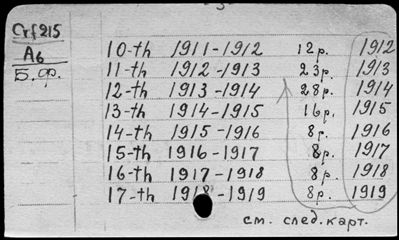 3
Crf215
A6
Б.ф.
10-th 1911-1912 12р. 1912
11-th 1912-1913 23р. 1913
12-th 1913-1914 28р. 1914
13-th 1914-1915 16р. 1915
14-th 1915-1916 8р. 1916
15-th 1916-1917 8р. 1917
16-th 1917-1918 8р. 1918
17-th 1918-1919 8р. 1919
см. след. карт.